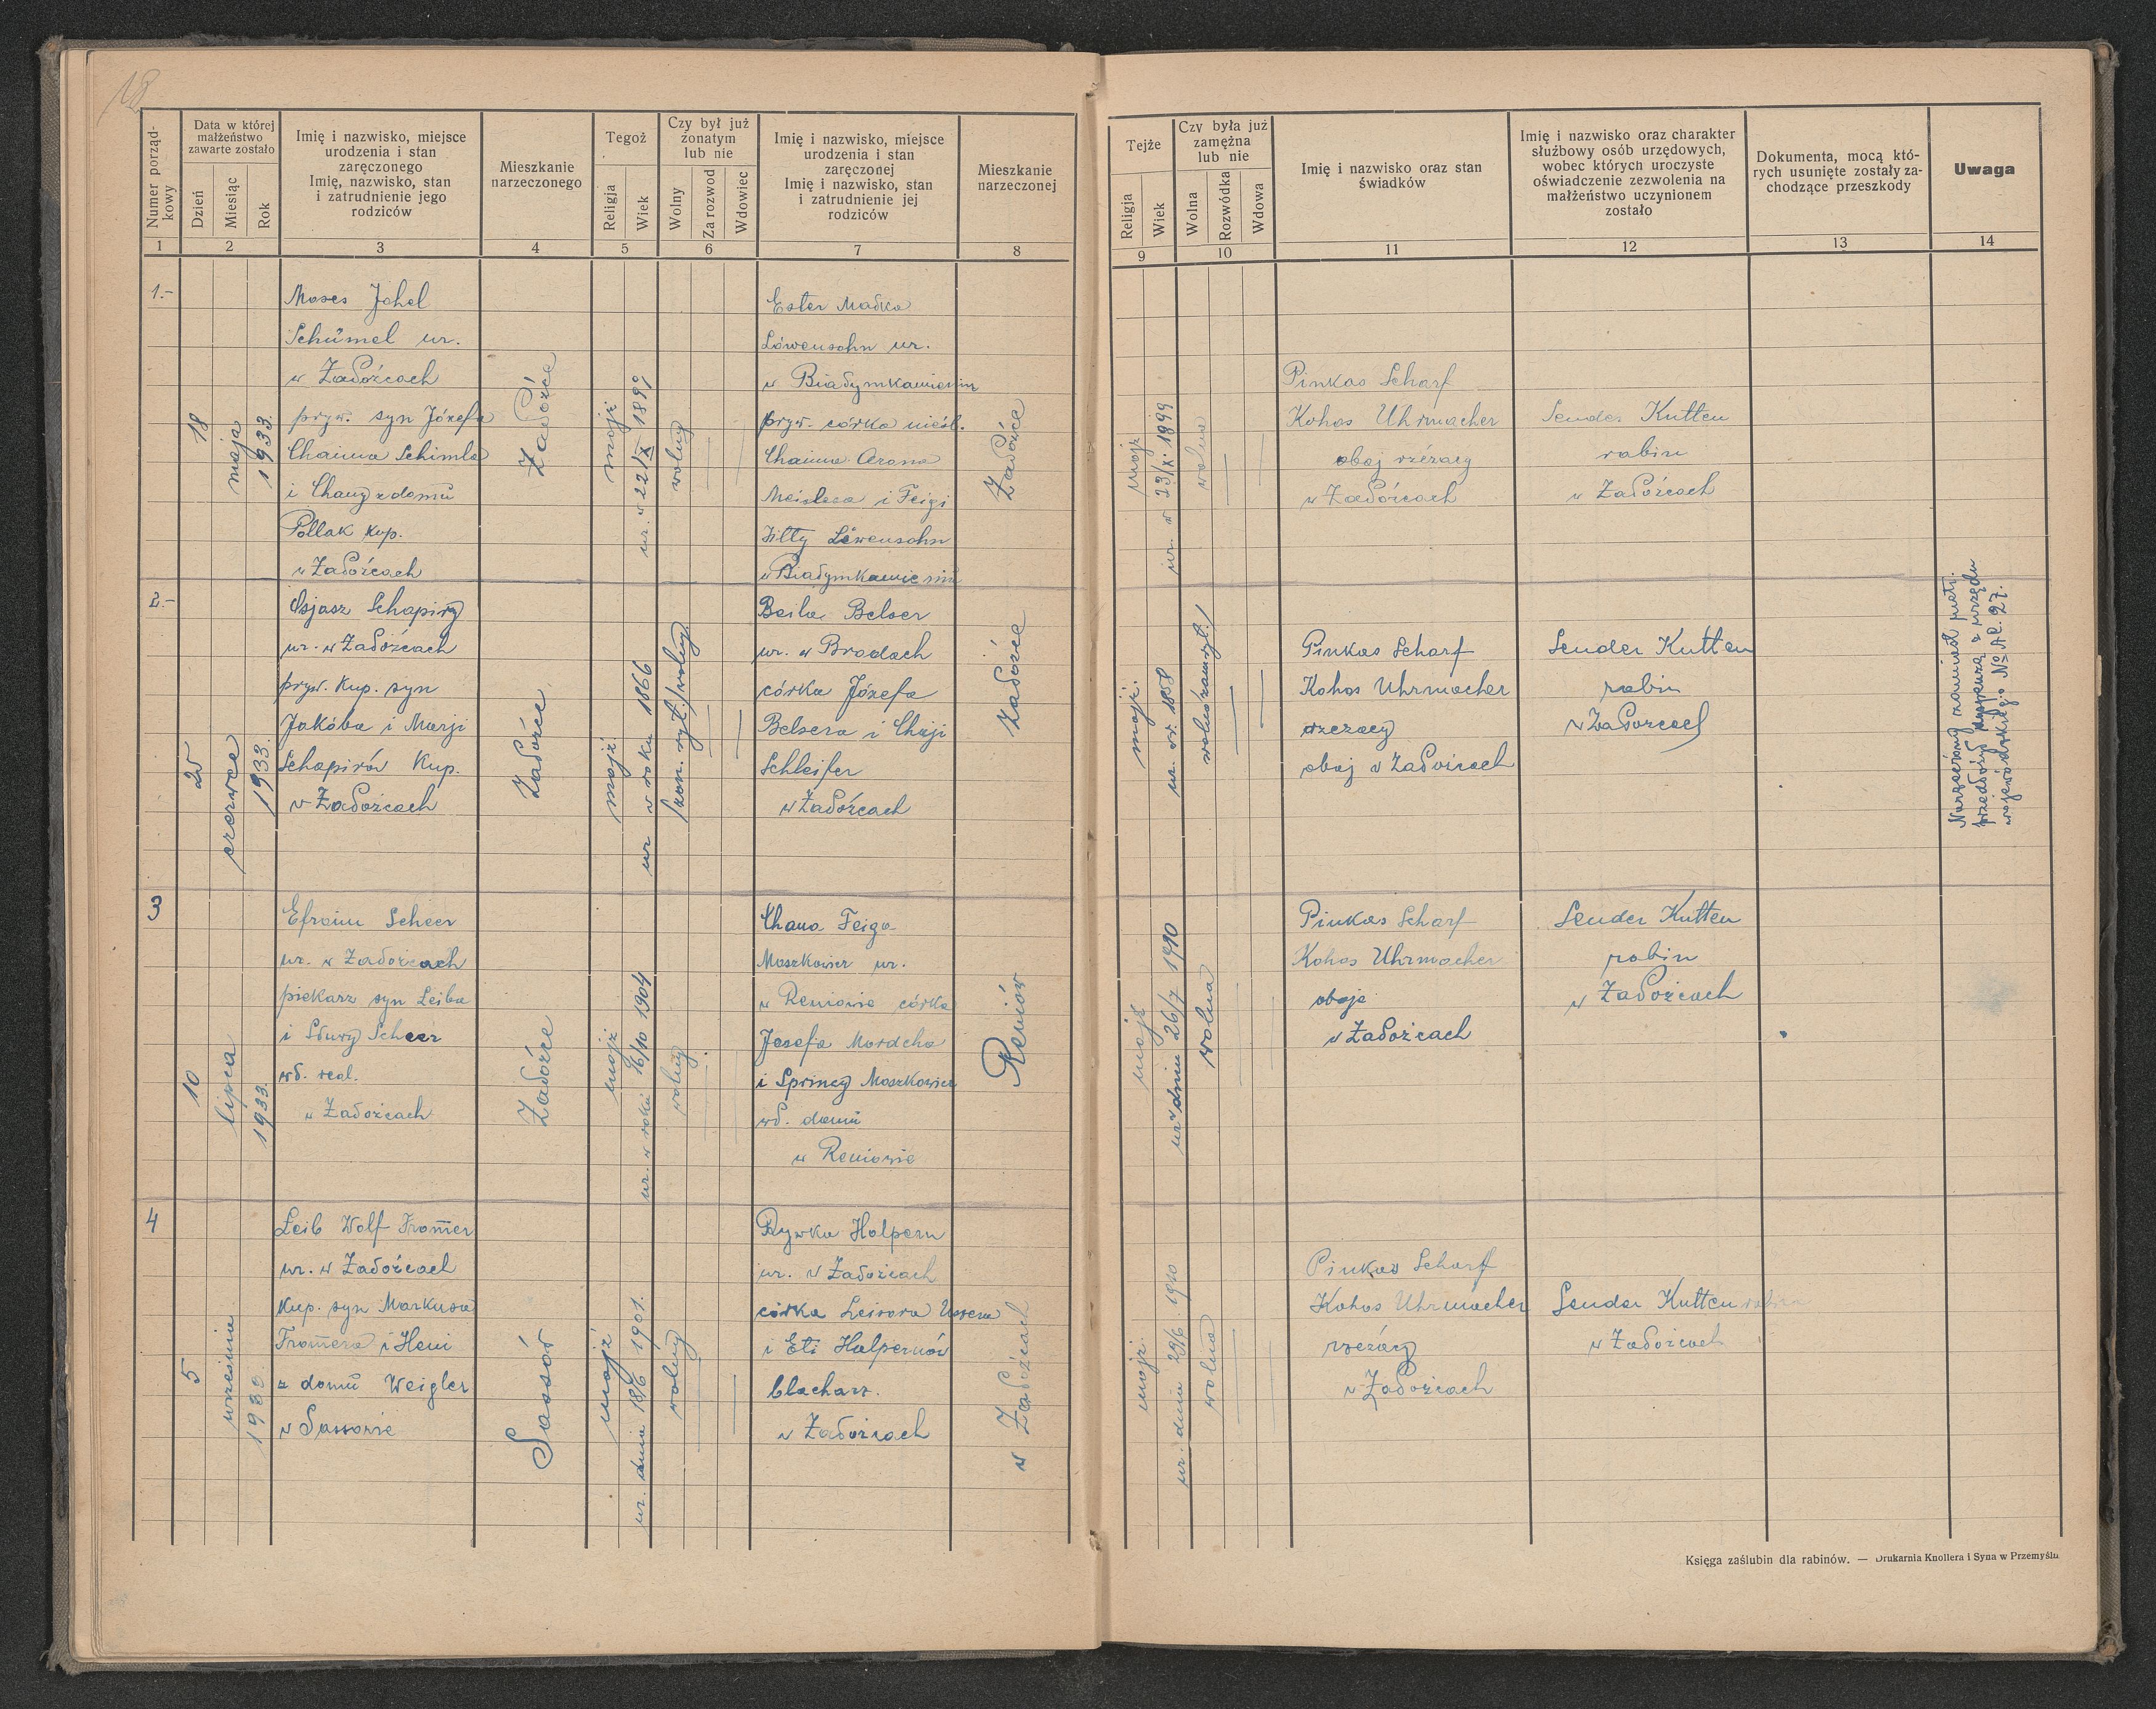 18
Numer porząd-
kowy
Data w której
małżeństwo
zawarte zostało
Dzień
Miesiąc
Rok
Imię i nazwisko, miejsce
urodzenia i stan
zaręczonego
Imię, nazwisko, stan
i zatrudnienie jego
rodziców
Mieszkanie
narzeczonego
Tegoż
Religja
Wiek
Czy był już
żonatym
lub nie
Wolny
Za rozwod
Wdowiec
Imię i nazwisko, miejsce
urodzenia i stan
zaręczonej
Imię i nazwisko, stan
i zatrudnienie jej
rodziców
Mieszkanie
narzeczonej
Tejże
Religja
Wiek
Czy była już
zamężna
lub nie
Wolna
Rozwódka
Wdowa
Imię i nazwisko oraz stan
świadków
Imię i nazwisko oraz charakter
służbowy osób urzędowych,
wobec których uroczyste
oświadczenie zezwolenia na
małżeństwo uczynionem
zostało
Dokumenta, mocą któ-
rych usunięte zostały za-
chodzące przeszkody
Uwaga
1 2 3 4 5 6 7 8 9 10 11 12 13 14
1.-
18
maja
1933.
Moses Johel
Schümel ur.
w Załoźcach
pryw. syn Józefa
Chaima Schimla
i Chany z domu
Pollak kup.
w Załoźcach
Załoźce
mojż
ur. w 22/X 1899
wolny
Ester Małka
Löwensohn ur.
w Białymkamieniu
pryw. córka nieśl.
Chaima Arona
i Feigi
Löwensohn
w Białymkamieniu
Załoźce
mojż
ur. w 23/X. 1899
wolna
Pinkas Scharf
Kohos Uhrmacher
obaj rzezacy
w Załoźcach
Sender Kutten
rabin
w Załoźcach
2.-
25
czerwca
1933.
Osjasz Schapiry
ur. w Załoźcach
pryw. kup. syn
Jakóba i Marji
Schapirów kup.
w Załoźcach
Załoźce
mojż
ur w roku 1866
/żon. ryt./ wolny.
Beila Belser
ur. w Brodach
córka Józefa
Belsera i
Schleifer
w Załoźcach
Załoźce
mojż.
ur. w r. 1858
Pinkas Scharf
Kohos Uhrmacher
rzezacy
obaj w Załoźcach
Sender Kutten
rabin
w Załoźcach
Narzeczony zamiast metr.
przedłożył dyspenzą z urzędu
wojewódzkiego No AC. 27.
3
10
lipca
1933.
Efroim Scheer
ur. w Załoźcach
piekarz syn Leiba
i Sury Scheer
wł. real.
w Załoźcach
Załoźce
mojż
ur. w roku 16/10 1904
wolny
Chana Feiga
Moszkowicz ur.
w Reniowie córka
Josefa Mordcha
i Sprincy Moszkowicz
wł. domu
w Reniowie
Reniów
mojż
ur. dnia 26/7 1910
wolna
Pinkas Scharf
Kohos Uhrmacher
obaje
w Załoźcach
Sender Kutten
rabin
w Załoźcach
4
5
września
Leib Wolf From̄er
ur. w Załoźcach
kup. syn Markusa
From̄era i Heni
z domu Weigler
w Sassowie
Sassów
mojż
ur. dnia 18/6 1901.
wolny
Rywka Halpern
ur. w Załoźcach
córka Leisora Ussera
i Eti Halpernów
blacharz.
w Załoźcach
w Załoźcach
mojż.
ur. dnia 29/6. 1910
wolna
Pinkas Scharf
Kohos Uhrmacher
rzezacy
w Załoźcach
Sender Kutten rabin
w Załoźcach
Księga zaślubin dla rabinów. — Drukarnia Knollera i Syna w Przemyślu